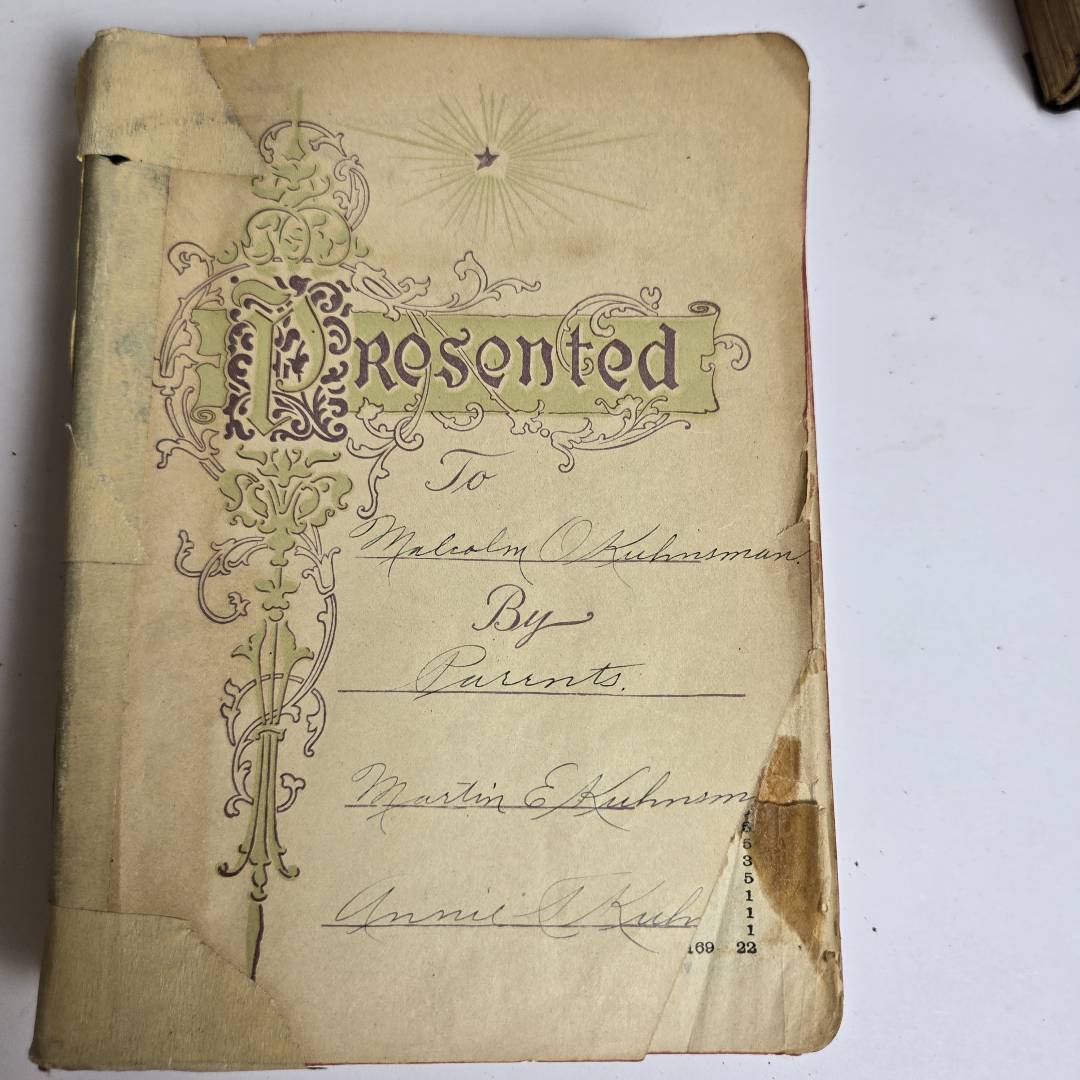 Presented
To
Malcolm O Kuhnsman.
By
Parents.
Martin E Kuhnsm
6
5
3
5
1
1
1
169 22
Annie T Kuhn